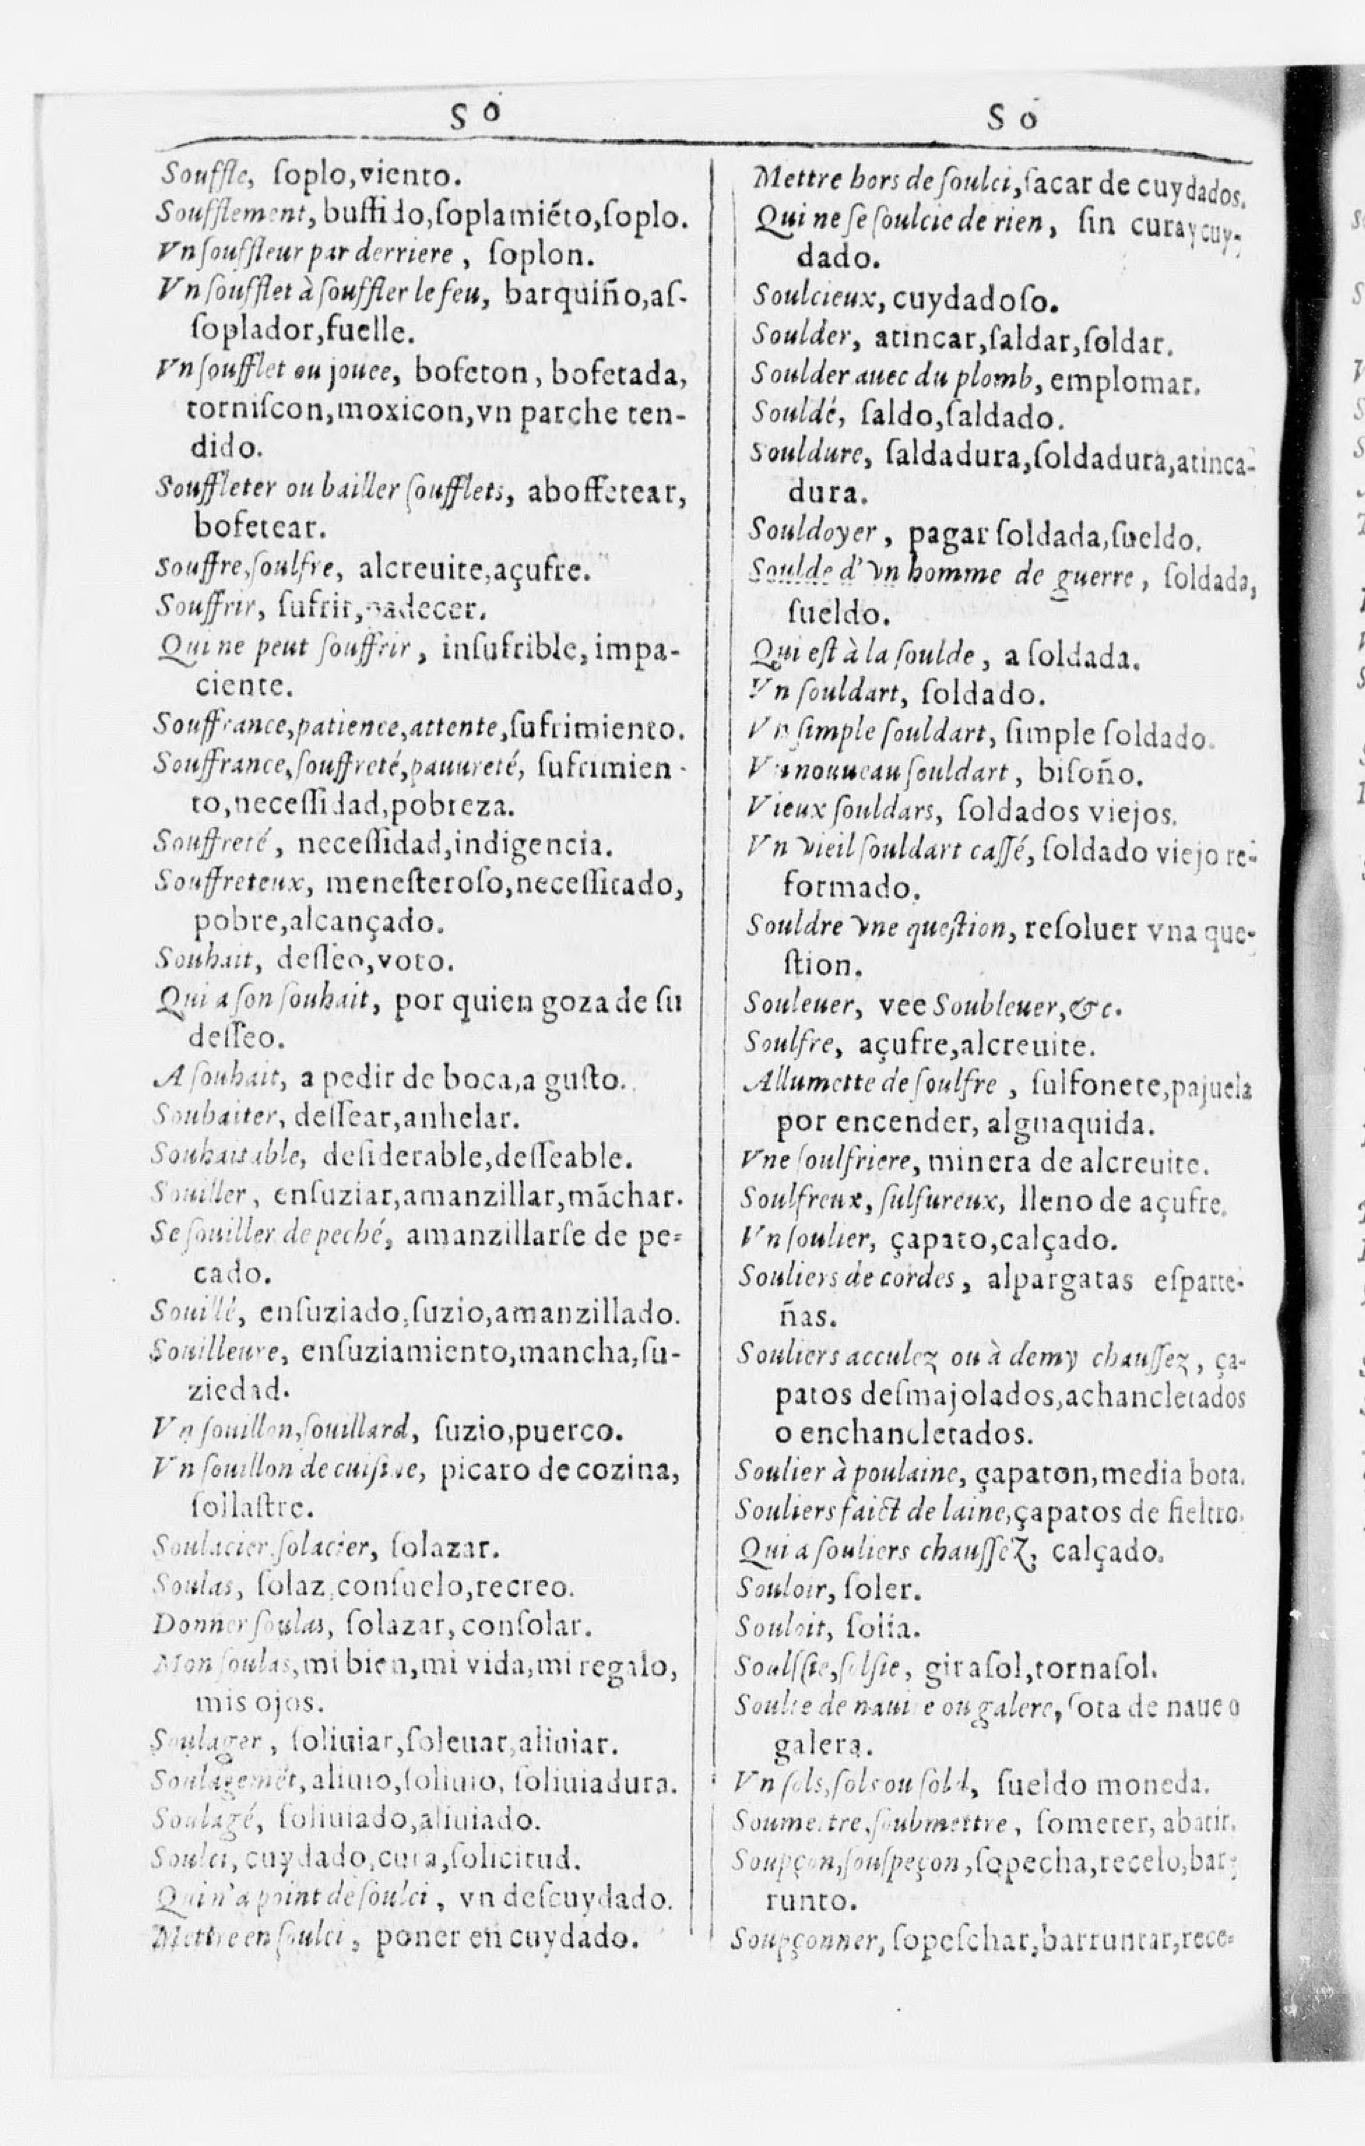 S O
Souffle, ſoplo,viento.
Soufflement, buffido,ſoplamiẽto,ſoplo.
Vn ſouffleur par derriere, ſoplon.
Vn ſoufflet à ſouffler le feu, barquiño,aſ-
ſoplador,fuelle.
Vn ſoufflet ou jouee, bofeton, bofetada,
torniſcon,moxicon,vn parche ten-
dido.
Souffleter ou bailler ſoufflets, aboffetear,
bofetear.
Souffre,ſoulfre, alcreuite,açufre.
Souffrir, ſufrir,padecer.
Qui ne peut ſouffrir, inſufrible, impa-
ciente.
Souffrance,patience,attente,ſufrimiento.
Souffrance,ſouffreté,pauureté, ſufrimien-
to,neceſſidad,pobreza.
Souffreté, neceſſidad,indigencia.
Souffreteux, meneſteroſo,neceſſitado,
pobre,alcançado.
Souhait, deſſeo,voto.
Qui a ſon ſouhait, por quien goza de ſu
deſſeo.
A ſouhait, a pedir de boca,a guſto.
Souhaiter, deſſear,anhelar.
Souhaitable, deſiderable,deſſeable.
Souiller, enſuziar,amanzillar,mãchar.
Se ſouiller de peché, amanzillarſe de pe-
cado.
Souillé, enſuziado,ſuzio,amanzillado.
Souilleure, enſuziamiento,mancha,ſu-
ziedad.
Vn ſouillon,ſouillard, ſuzio,puerco.
Vn ſouillon de cuiſine, picaro de cozina,
ſollaſtre.
Soulacier,ſolacier, ſolazar.
Soulas, ſolaz,conſuelo,recreo.
Donner ſoulas, ſolazar, conſolar.
Mon ſoulas,mi bien,mi vida,mi regalo,
mis ojos.
Soulager, ſoliuiar,ſoleuar,aliuiar.
Soulagemẽt,aliuio,ſoliuio, ſoliuiadura.
Soulagé, ſoliuiado,aliuiado.
Soulci, cuydado,cura,ſolicitud.
Qui n'a point de ſoulci, vn deſcuydado.
Mettre en ſoulci, poner en cuydado.
S O
Mettre hors de ſoulci,ſacar de cuydados.
Qui ne ſe ſoulcie de rien, ſin cura y cuy-
dado.
Soulcieux, cuydadoſo.
Soulder, atincar,ſaldar,ſoldar.
Soulder auec du plomb, emplomar.
Souldé, ſaldo,ſaldado.
Souldure, ſaldadura,ſoldadura,atinca-
dura.
Souldoyer, pagar ſoldada,ſueldo.
Soulde d'vn homme de guerre, ſoldada,
ſueldo.
Qui eſt à la ſoulde, a ſoldada.
Vn ſouldart, ſoldado.
Vn ſimple ſouldart, ſimple ſoldado.
Vn nouueau ſouldart, biſoño.
Vieux ſouldars, ſoldados viejos.
Vn vieil ſouldart caſſé, ſoldado viejo re-
formado.
Souldre vne queſtion, reſoluer vna que-
ſtion.
Souleuer, vee Soubleuer,&c.
Soulfre, açufre,alcreuite.
Allumette de ſoulfre, ſulfonete,pajuela
por encender, alguaquida.
Vne ſoulfriere, minera de alcreuite.
Soulfreux, ſulfureux, lleno de açufre.
Vn ſoulier, çapato,calçado.
Souliers de cordes, alpargatas eſparte-
ñas.
Souliers acculez ou à demy chauſſez, ça-
patos deſmajolados,achancletados
o enchancletados.
Soulier à poulaine, çapaton,media bota.
Souliers faict de laine,çapatos de fieltro.
Qui a ſouliers chauſſez, calçado.
Souloir, ſoler.
Souloit, ſolia.
Soulſſie,ſolſie, giraſol,tornaſol.
Soulte de nauire ou galere, ſota de naue o
galera.
Vn ſols,ſols ou ſold, ſueldo moneda.
Soumettre,ſoubmettre, ſometer, abatir.
Soupçon,ſouſpeçon,ſopecha,recelo,bar-
runto.
Soupçonner, ſopeſchar,barruntar,rece-